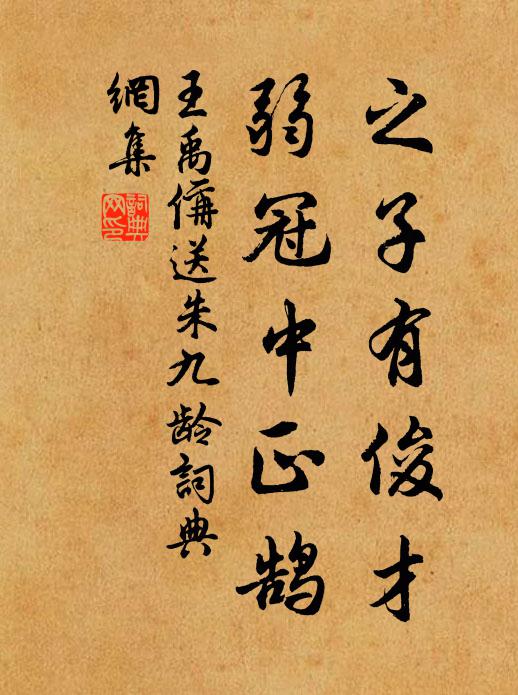 之子有俊才
弱冠中正鹄
王禹偁送朱九龄詞典
網集
詞典
网印